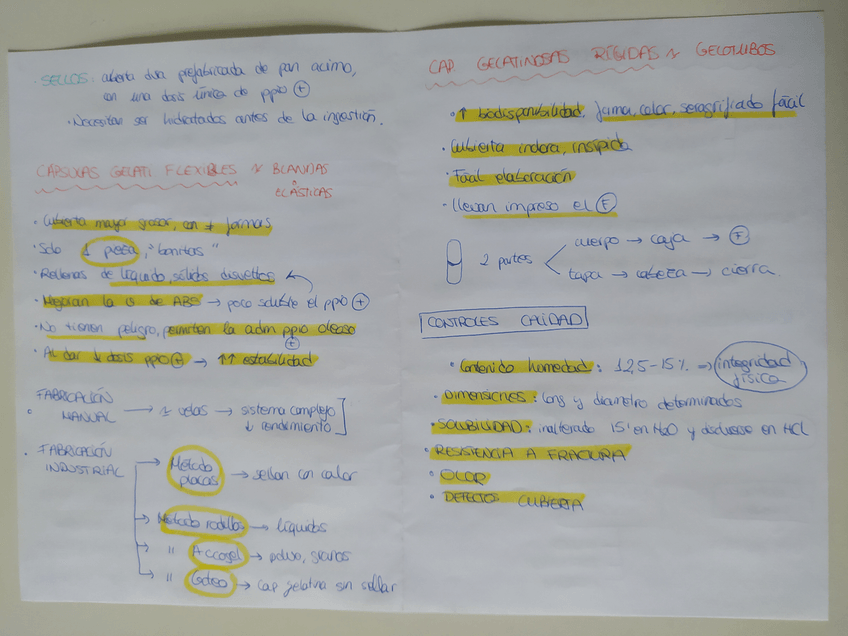 · SELLOS: cubierta dura prefabricada de pan acimo,
con una dosis única de ppio (+)
· Necesitan ser hidratados antes de la ingestión.
CÁPSULAS GELATI FLEXIBLES BLANDAS
ELÁSTICAS
· Cubierta mayor grosor, con ≠ formas
· Solo 1 pieza, "bonitas"
· Rellenas de líquido, sólidos disueltos
· Mejoran la de ABS → poco soluble el ppio (+)
· No tienen peligro, permiten la adm ppio oleoso
(+)
· Al dar ↓ dosis ppio (+) → ↑↑ estabilidad
· FABRICACIÓN
MANUAL → velas → sistema complejo
↓ rendimiento
· FABRICACIÓN
INDUSTRIAL → Método
placas → sellan con calor
→ Método rodillos → líquidos
→ " Accogel → polvo, granos
→ " Goteo → cap gelatina sin sellar
CAP. GELATINOSAS RÍGIDAS GELOTUBOS
· ↑ biodisponibilidad, forma, color, serigrafiado fácil
· Cubierta indora, insípida
· Fácil elaboración
· Llevan impreso el (F)
2 partes
cuerpo → caja → (F)
tapa → cabeza → cierra.
CONTROLES CALIDAD
· Contenido humedad: 12,5-15% → integridad
física
· DIMENSIONES: long y diámetro determinados
· SOLUBILIDAD: inalterado 15' en H2O y disolverse en HCl
· RESISTENCIA A FRACTURA
· OLOR
· DEFECTOS CUBIERTA